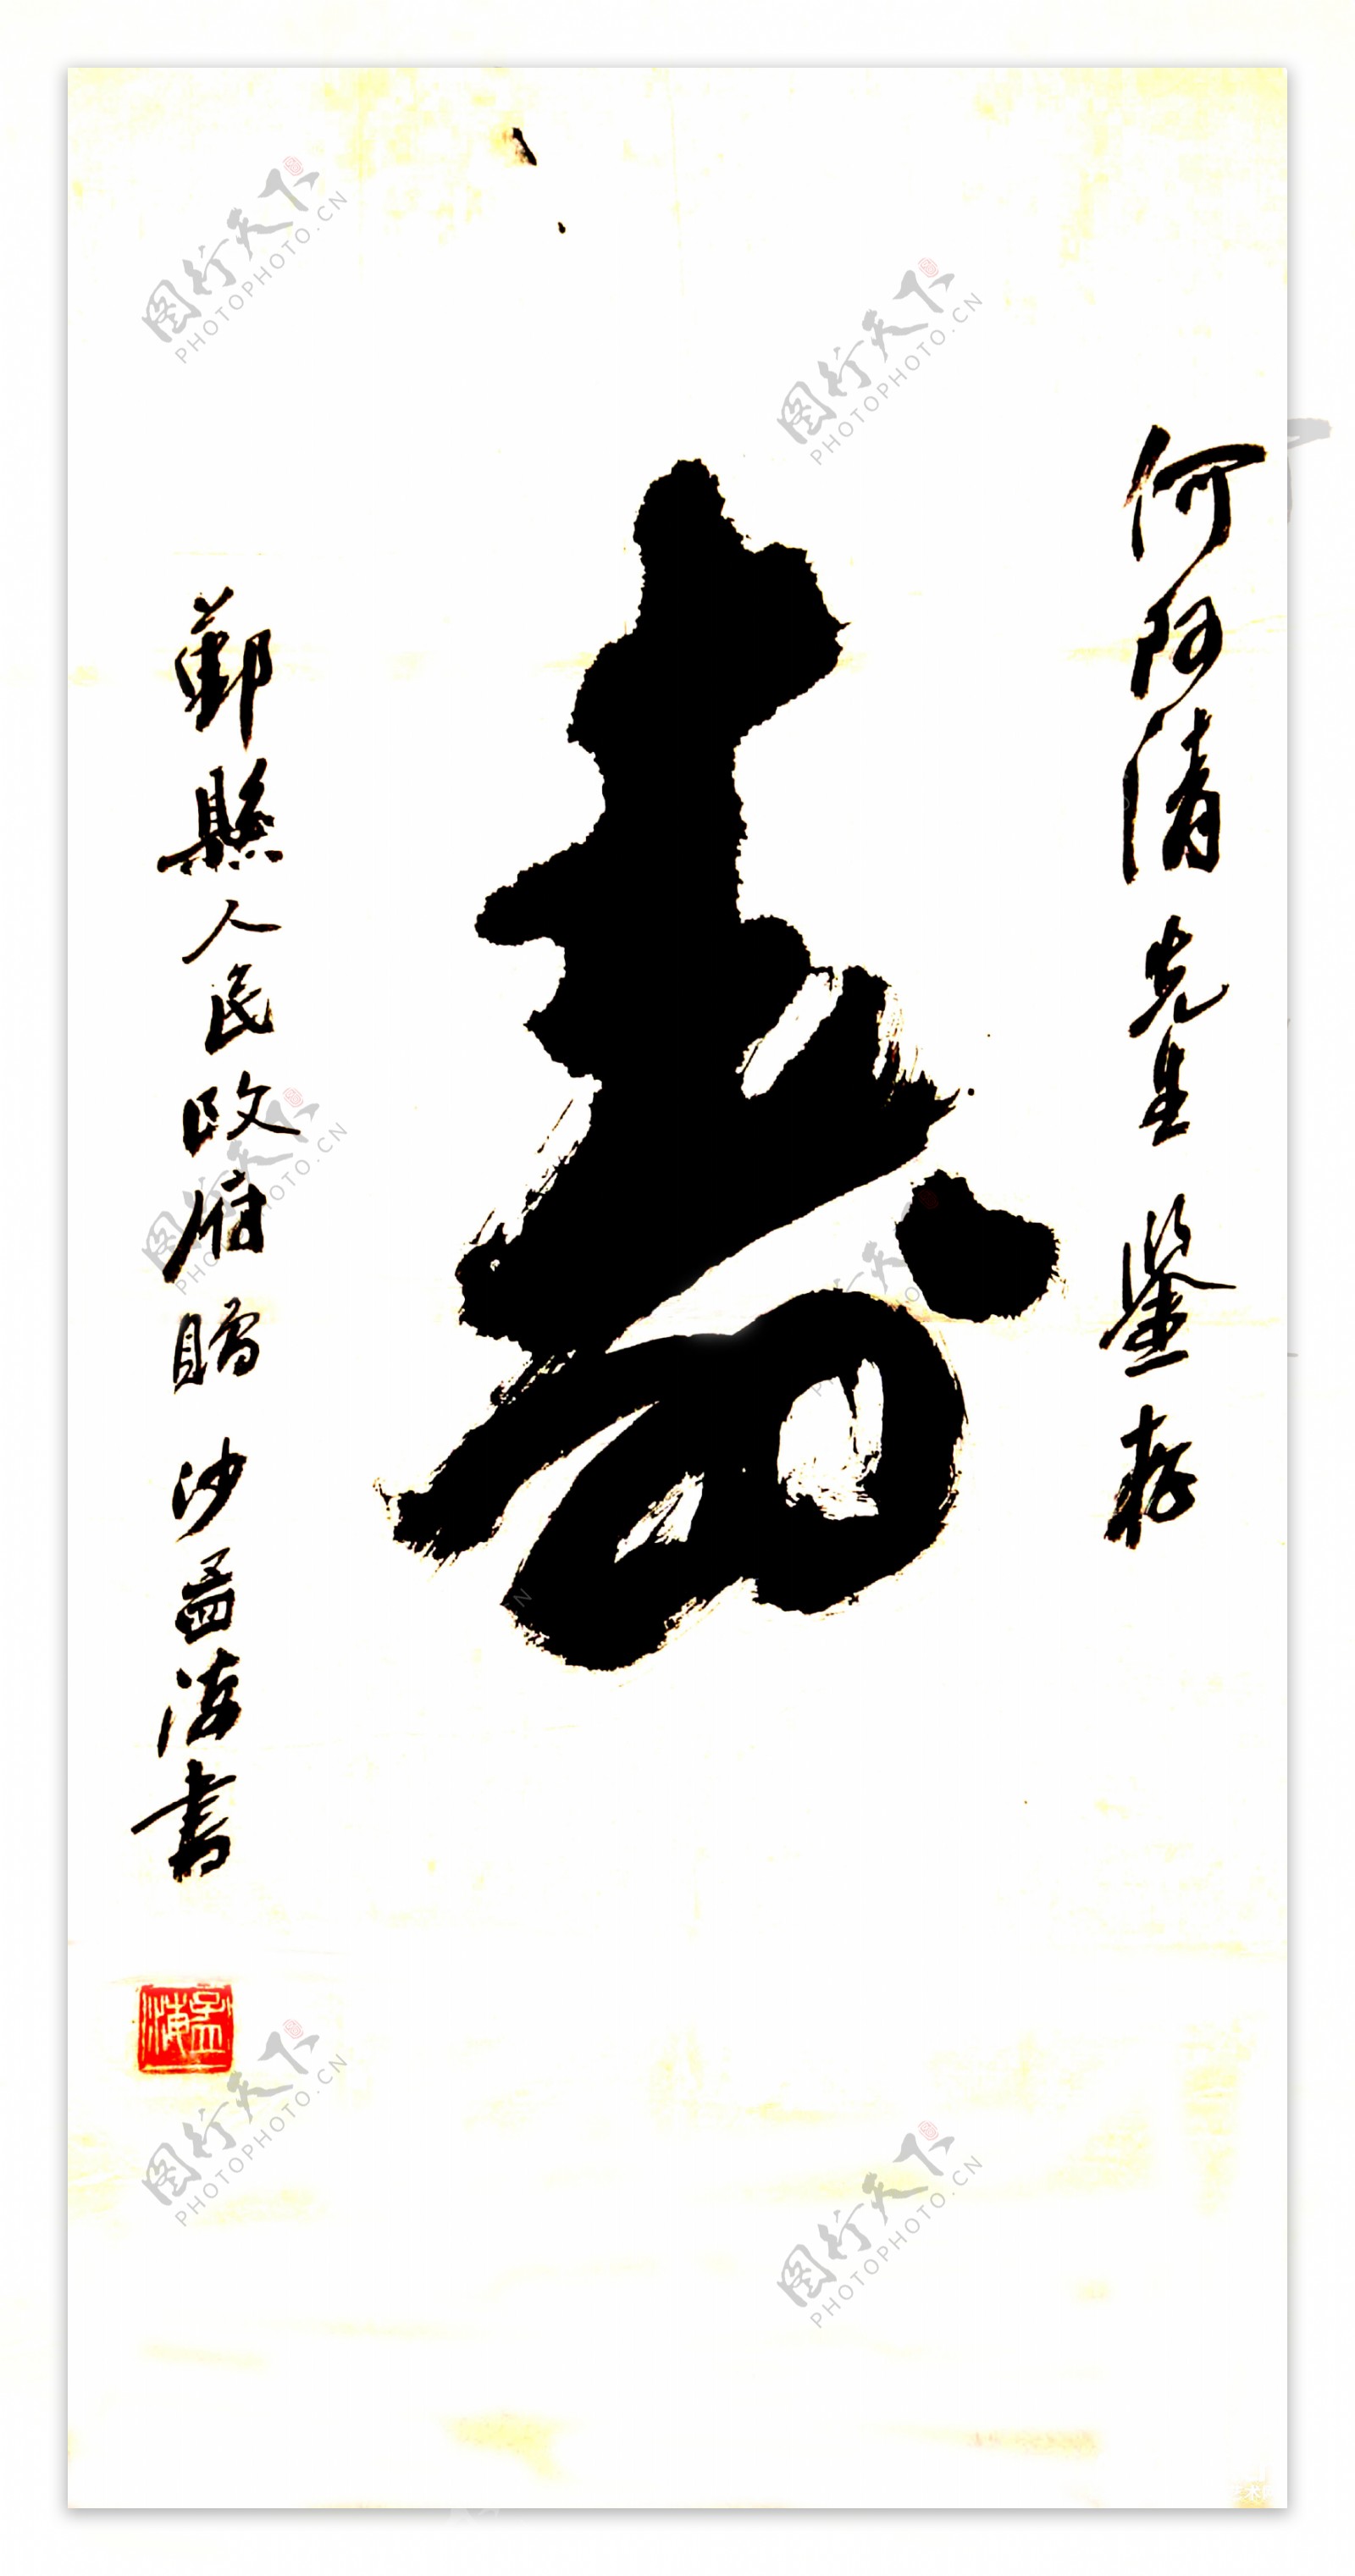 何阿清先生 鉴存
寿
鄞縣人民政府贈 沙孟海書
孟海
图行天下
PHOTOPHOTO.CN
图行天下
PHOTOPHOTO.CN
图行天下
PHOTOPHOTO.CN
图行天下
PHOTOPHOTO.CN
图行天下
PHOTOPHOTO.CN
图行天下
PHOTOPHOTO.CN